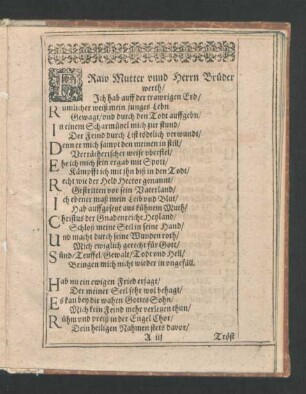 FRaw Mutter vnnd Herrn Brüder
werth/
Ich hab auff der trawrigen Erd/
Rümlicher weiß mein junges Lebn
Gewagt/vnd durch den Todt auffgebn/
In einem Scharmützel mich zur stund/
Der Feind durch List tödtlich verwundt/
Denn er mich sampt den meinen in still/
Verrätherischer weise vberfiel/
Ehe ich mich sein ergab mit Spott/
Kämpfft ich mit ihn biß in den Todt/
Recht wie der Held Hector genannt/
Gestritten vor sein Vaterland/
Ich ebener maß mein Leib vnd Blut/
Hab auffgesetzt aus kühnem Muth/
Christus der Gnadenreiche Heyland/
Schloß meine Seel in seine Hand/
Vnd macht durch seine Wunden roth/
Mich ewiglich gerecht für Gott/
Sünd/Teuffel/Gewalt/Todt vnd Hell/
Bringen mich nicht wieder in vngefäll.
Hab nu ein ewigen Fried erjagt/
Der meiner Seel sehr wol behagt/
Es kan bey die wahen Gottes Sohn/
Mich kein Feind mehr verletzen thun/
Rühm vnd preiß in der Engel Chor/
Dein heiligen Nahmen stets davor/
A iij Tröst